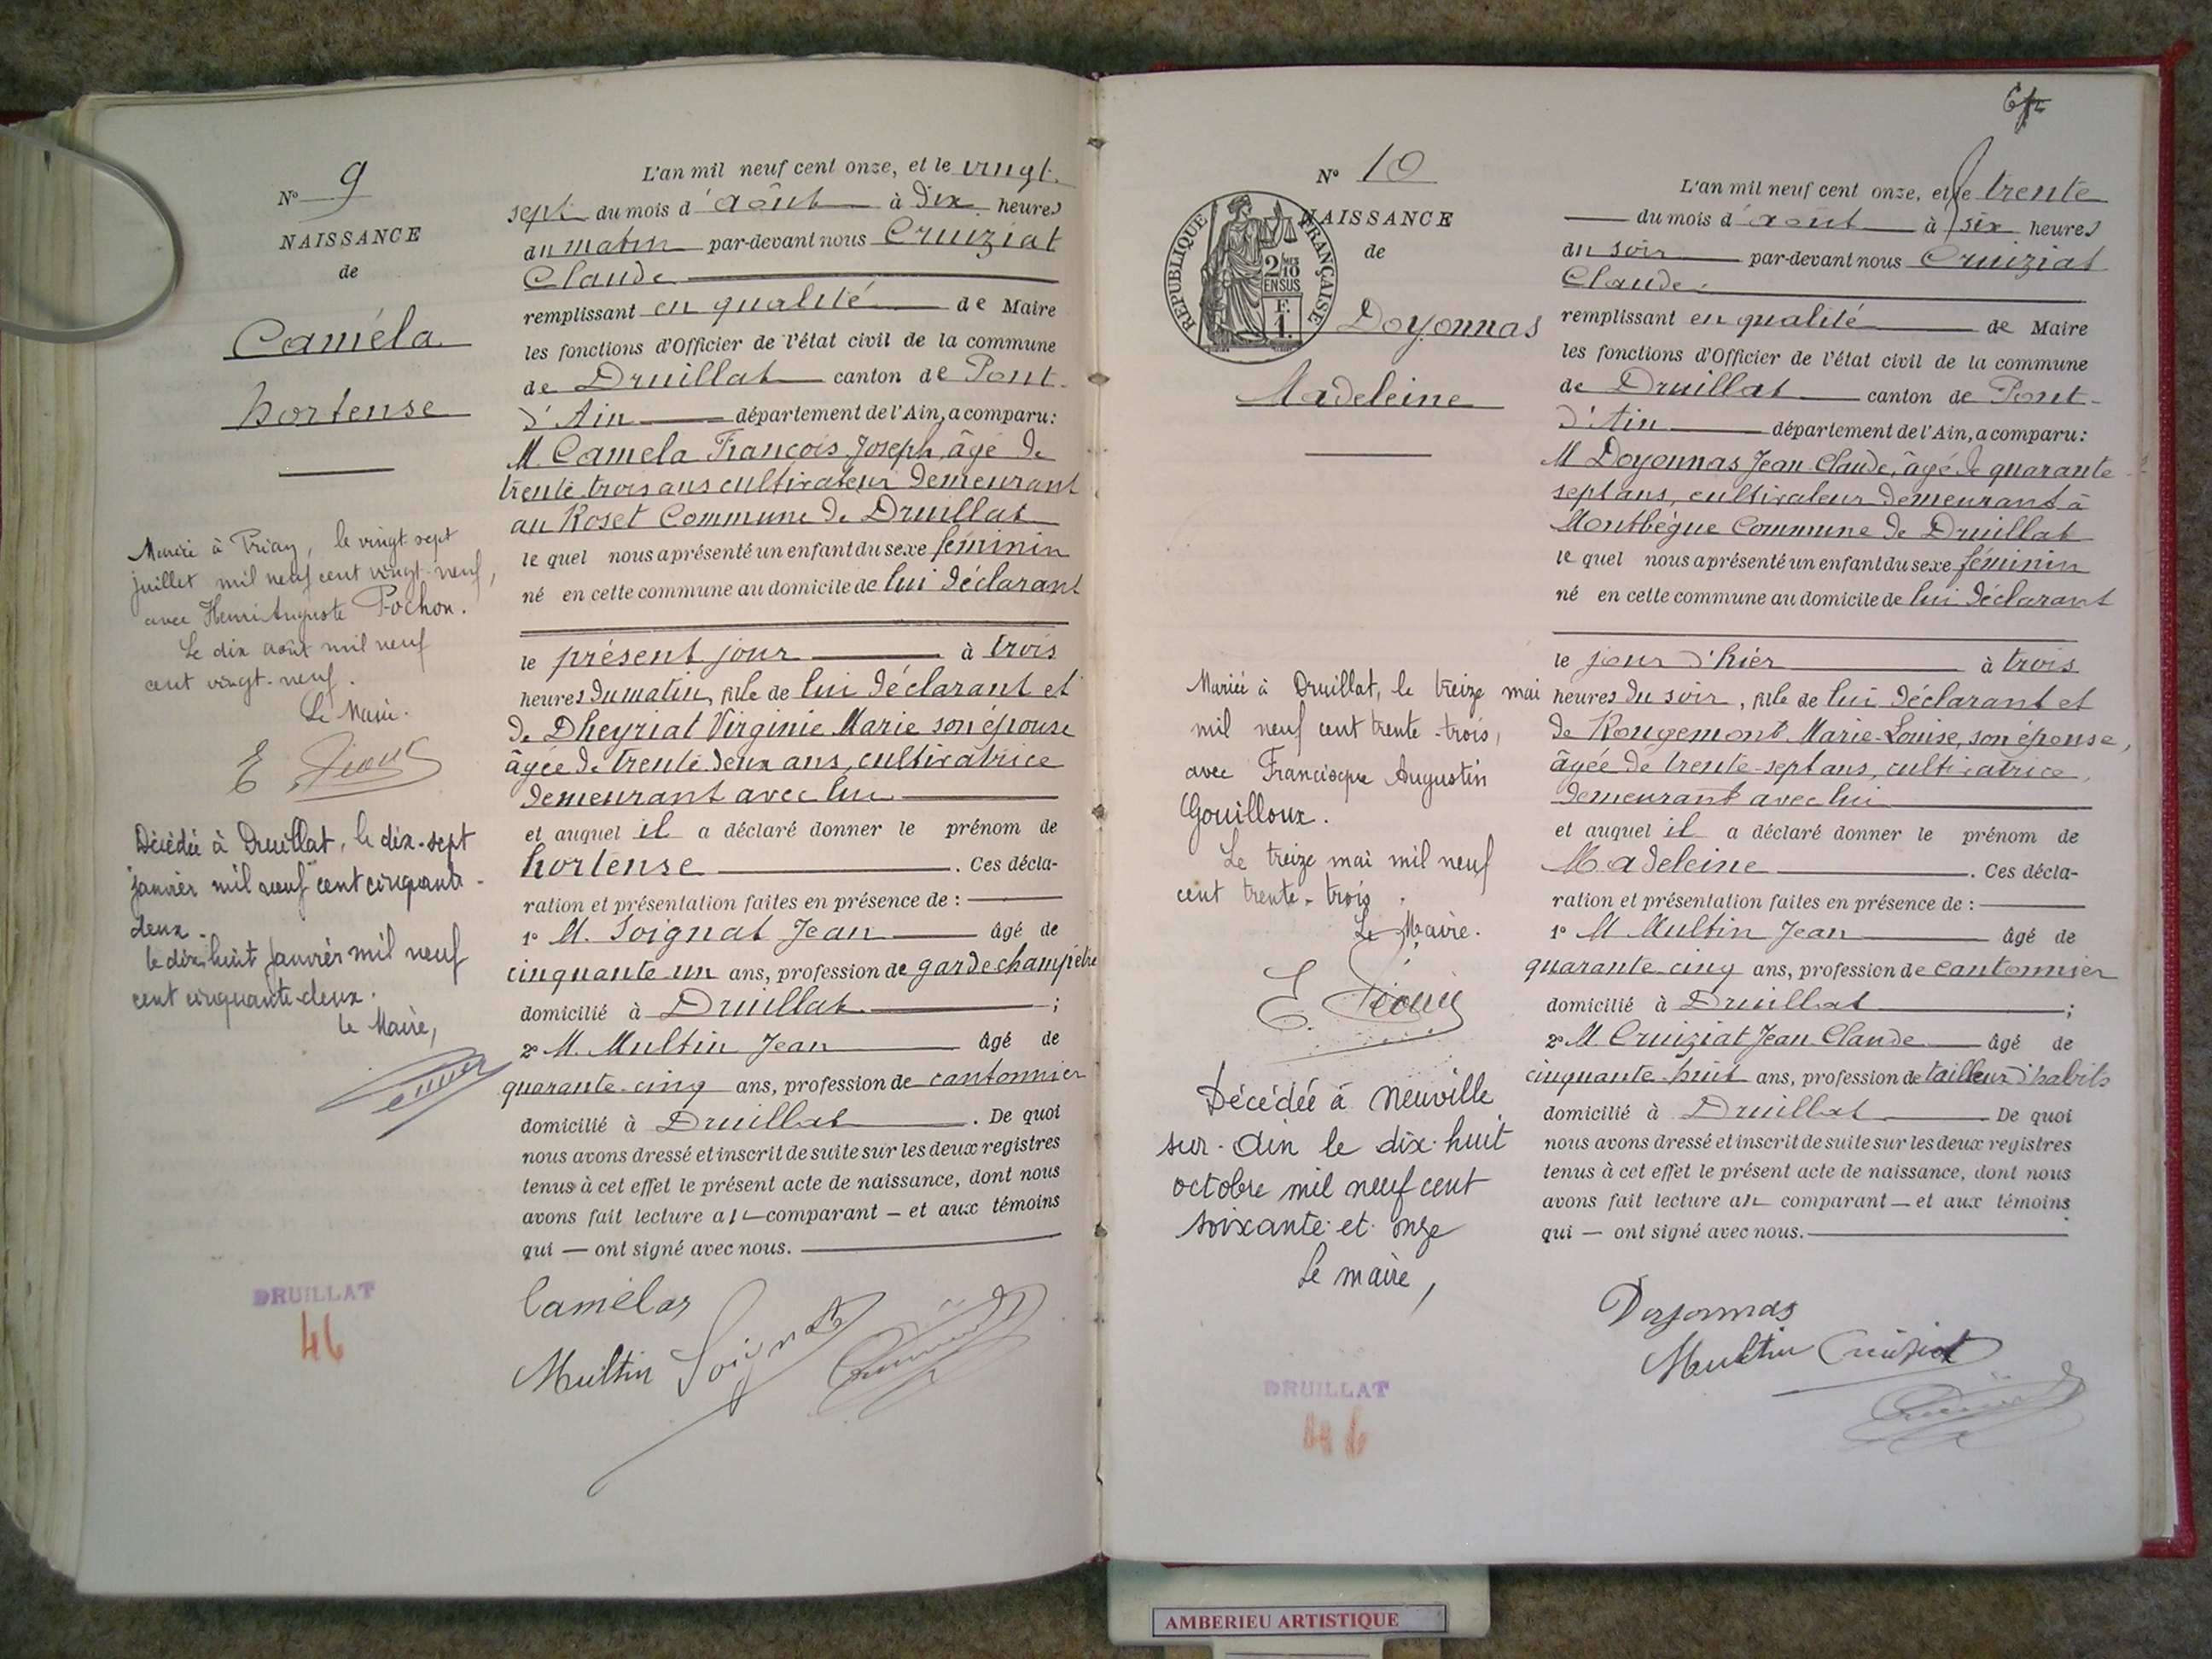 Nº 9
NAISSANCE
de
Caméla
hortense
Mariée à Priay, le vingt sept
juillet mil neuf cent vingt-neuf,
avec Henri Auguste Pochon.
Le dix août mil neuf
cent vingt-neuf.
Le Maire.
Décédée à Druillat, le dix-sept
janvier mil neuf cent cinquante-
deux.
le dix-huit janvier mil neuf
cent cinquante-deux.
le Maire,
DRUILLAT
46
L'an mil neuf cent onze, et le vingt-
sept du mois d'août à dix heures
du matin par-devant nous Cruiziat
Claude
remplissant en qualité de Maire
les fonctions d'Officier de l'état civil de la commune
de Druillat canton de Pont-
d'Ain département de l'Ain, a comparu:
M. Camela François Joseph, âgé de
trente trois ans cultivateur demeurant
au Roset Commune de Druillat
le quel nous a présenté un enfant du sexe féminin
né en cette commune au domicile de lui déclarant
le présent jour à trois
heures du matin, fille de lui déclarant et
de Dheyriat Virginie Marie son épouse
âgée de trente deux ans, cultivatrice
demeurant avec lui
et auquel il a déclaré donner le prénom de
hortense. Ces décla-
ration et présentation faites en présence de :
1º M. Soignat Jean âgé de
cinquante un ans, profession de garde champêtre
domicilié à Druillat ;
2º M. Multin Jean âgé de
quarante-cinq ans, profession de cantonnier
domicilié à Druillat. De quoi
nous avons dressé et inscrit de suite sur les deux registres
tenus à cet effet le présent acte de naissance, dont nous
avons fait lecture au comparant — et aux témoins
qui — ont signé avec nous.
Camélas
Multin Soignat
Nº 10
NAISSANCE
de
RÉPUBLIQUE FRANÇAISE
2/10 EN SUS
F. 1.
Doyonnas
Madeleine
Mariée à Druillat, le treize mai
mil neuf cent trente-trois,
avec Francisque Augustin
Gouilloux.
Le treize mai mil neuf
cent trente-trois.
Le Maire.
Décédée à Neuville
sur-Ain le dix-huit
octobre mil neuf cent
soixante-et-onze
Le maire,
DRUILLAT
46
L'an mil neuf cent onze, et le trente
du mois d'août à six heures
du soir par-devant nous Cruiziat
Claude
remplissant en qualité de Maire
les fonctions d'Officier de l'état civil de la commune
de Druillat canton de Pont-
d'Ain département de l'Ain, a comparu:
M Doyonnas Jean Claude, âgé de quarante
sept ans, cultivateur demeurant à
Montbègue Commune de Druillat
le quel nous a présenté un enfant du sexe féminin
né en cette commune au domicile de lui déclarant
le jour d'hier à trois
heures du soir, fille de lui déclarant et
de Rougemont Marie-Louise, son épouse,
âgée de trente-sept ans, cultivatrice,
demeurant avec lui
et auquel il a déclaré donner le prénom de
Madeleine. Ces décla-
ration et présentation faites en présence de :
1º M Multin Jean âgé de
quarante-cinq ans, profession de cantonnier
domicilié à Druillat ;
2º M. Cruiziat Jean Claude âgé de
cinquante-huit ans, profession de tailleur d'habits
domicilié à Druillat De quoi
nous avons dressé et inscrit de suite sur les deux registres
tenus à cet effet le présent acte de naissance, dont nous
avons fait lecture au comparant — et aux témoins
qui — ont signé avec nous.
Doyonnas
Multin Cruiziat
AMBERIEU ARTISTIQUE